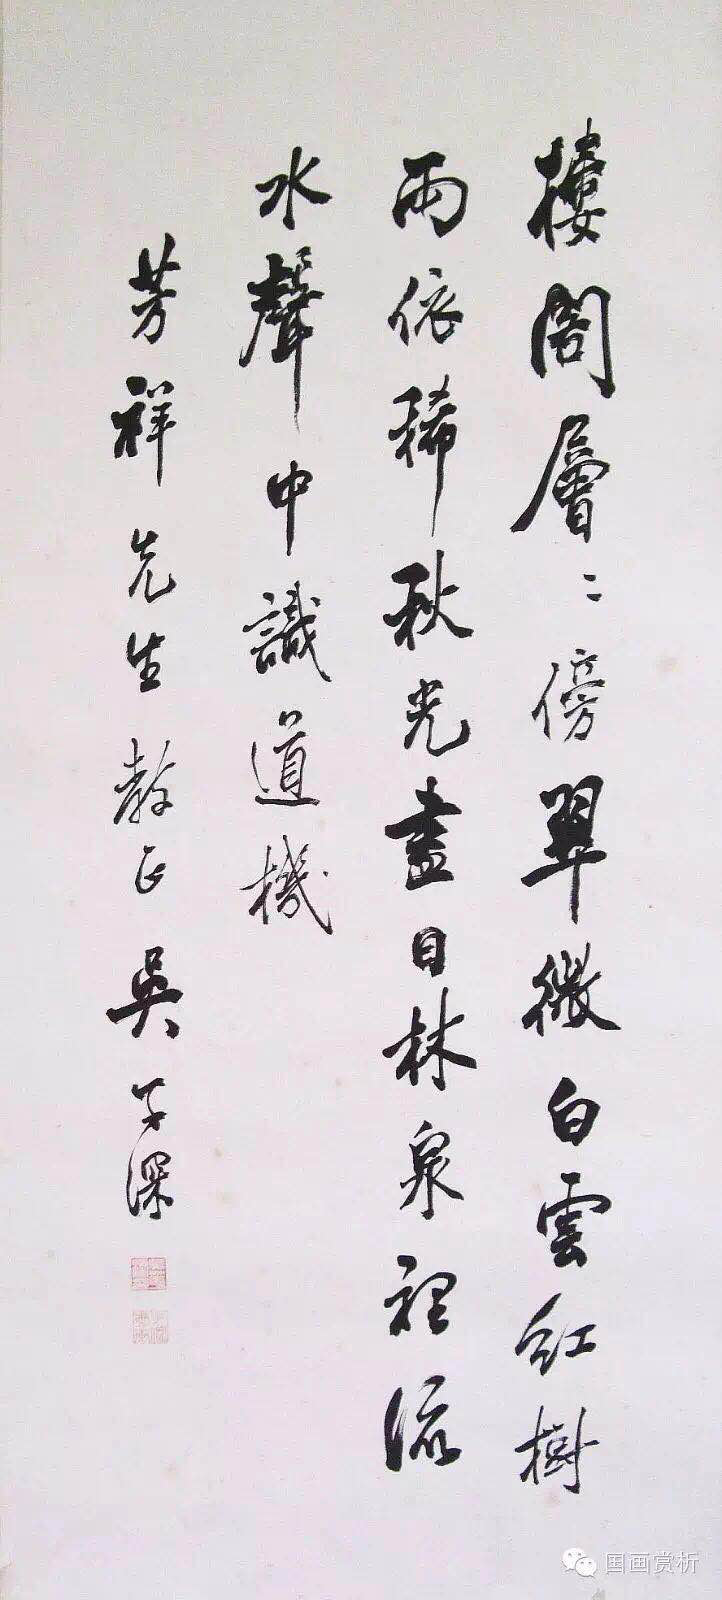 樓閣層〻傍翠微白雲紅樹
兩依稀秋光盡日林泉裡流
水聲中識道機
芳祥先生教正吳子深
国画赏析